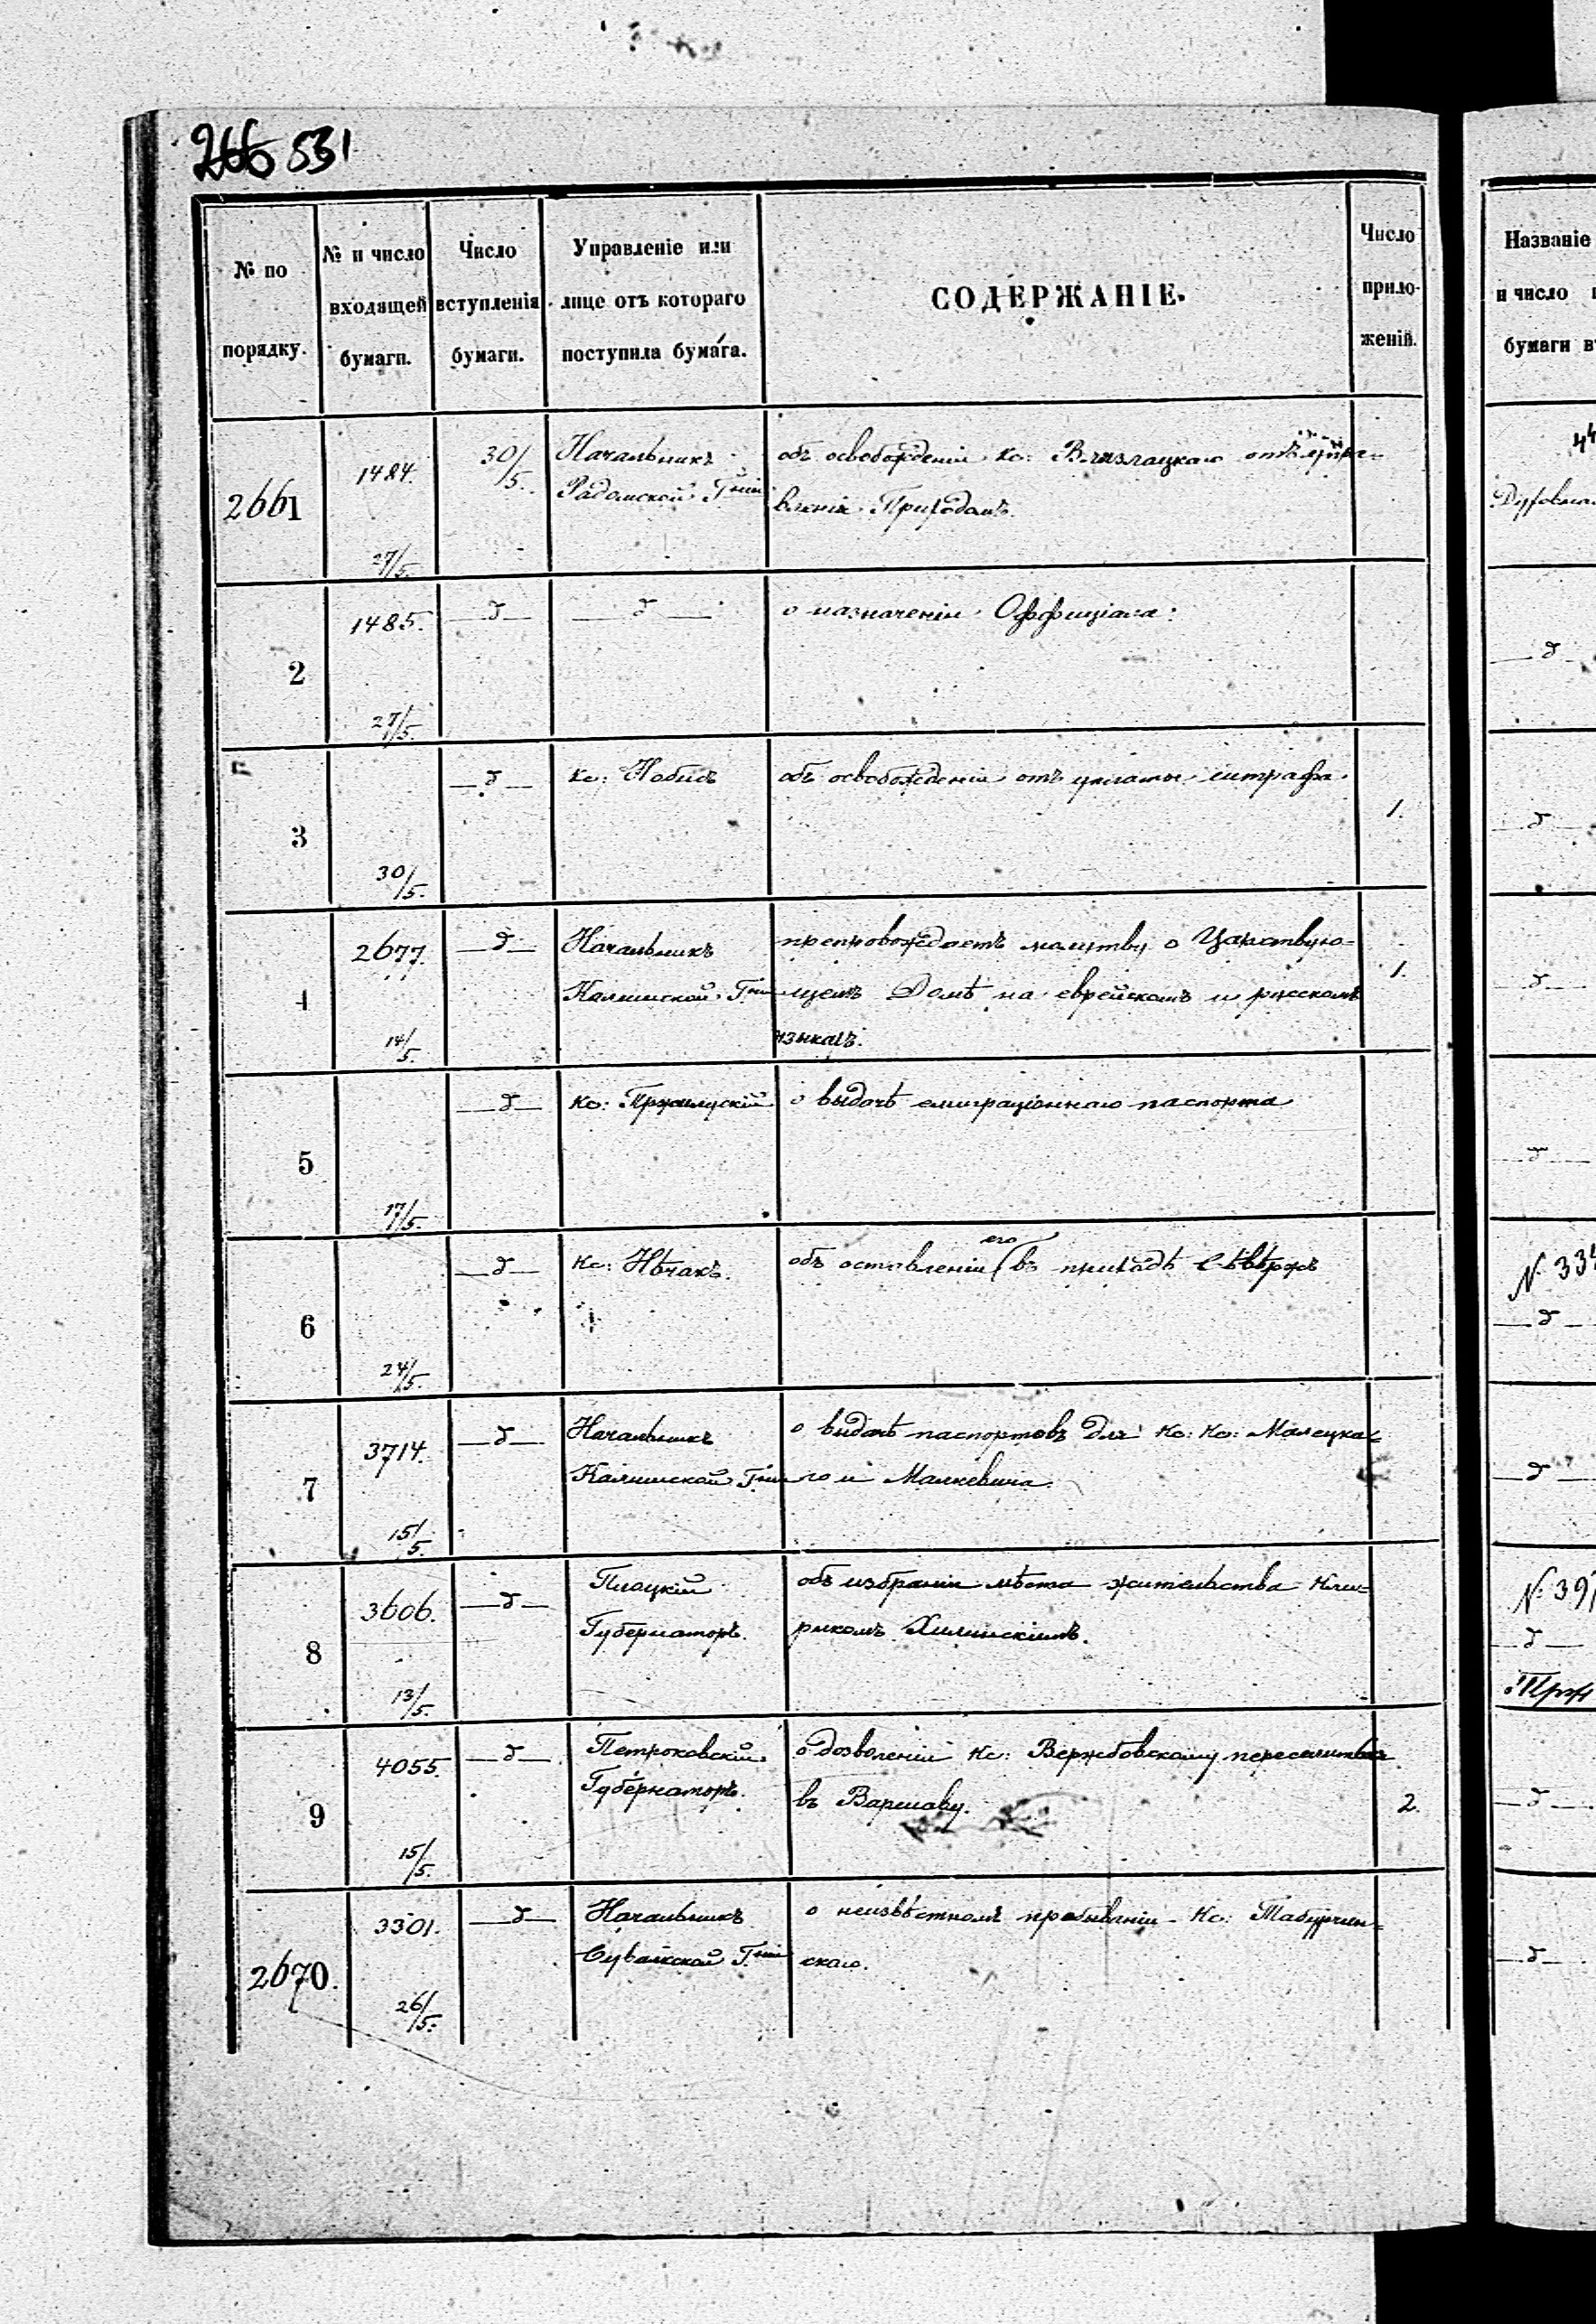 266 531
№ по
порядку.
№ и число
входящей
бумаги.
Число
вступленія
бумаги.
Управленіе или
лице отъ котораго
поступила бумага.
СОДЕРЖАНІЕ.
Число
прило-
женій.
2661
1484.
27/5.
30/5.
Начальникъ
Радомской Гніи
объ освобожденіи Кс: отъ упра-
вленія Приходомъ.
2
1485.
27/5.
—д—
—д—
о назначеніи Оффиціала.
3
30/5.
—д—
Кс: Нобисъ
объ освобожденіи отъ уплаты штрафа.
1.
4
2677.
14/5.
—д—
Начальникъ
Калишской Гніи
препровождаетъ молитву о Царствую-
щемъ Домѣ на еврейскомъ и русскомъ
языкахъ.
1.
5
17/5.
—д—
Кс: Пржилускій
о выдачѣ емиграціоннаго паспорта
6
24/5.
—д—
Кс: Нѣчакъ.
объ оставленіи его въ приходѣ
7
3714.
15/5.
—д—
Начальникъ
Калишской Гніи
о выдачѣ паспортовъ для Кс: Кс: Малецка-
го и Малкевича.
8
3606.
13/5.
—д—
Плоцкій
Губернаторъ.
объ избраніи мѣста жительства Кли-
рикомъ Хилинскимъ.
9
4055.
15/5.
—д—
Петроковскій
Губернаторъ.
о дозволеніи Кс: Вержбовскому переселиться
въ Варшаву.
2.
2670.
3301.
26/5.
—д—
Начальникъ
Сувалкской Гніи
о неизвѣстномъ пребываніи Кс:
скаго.
Названіе
и число
бумаги
Духовна
—д—
—д—
—д—
—д—
—д—
—д—
—д—
—д—
—д—